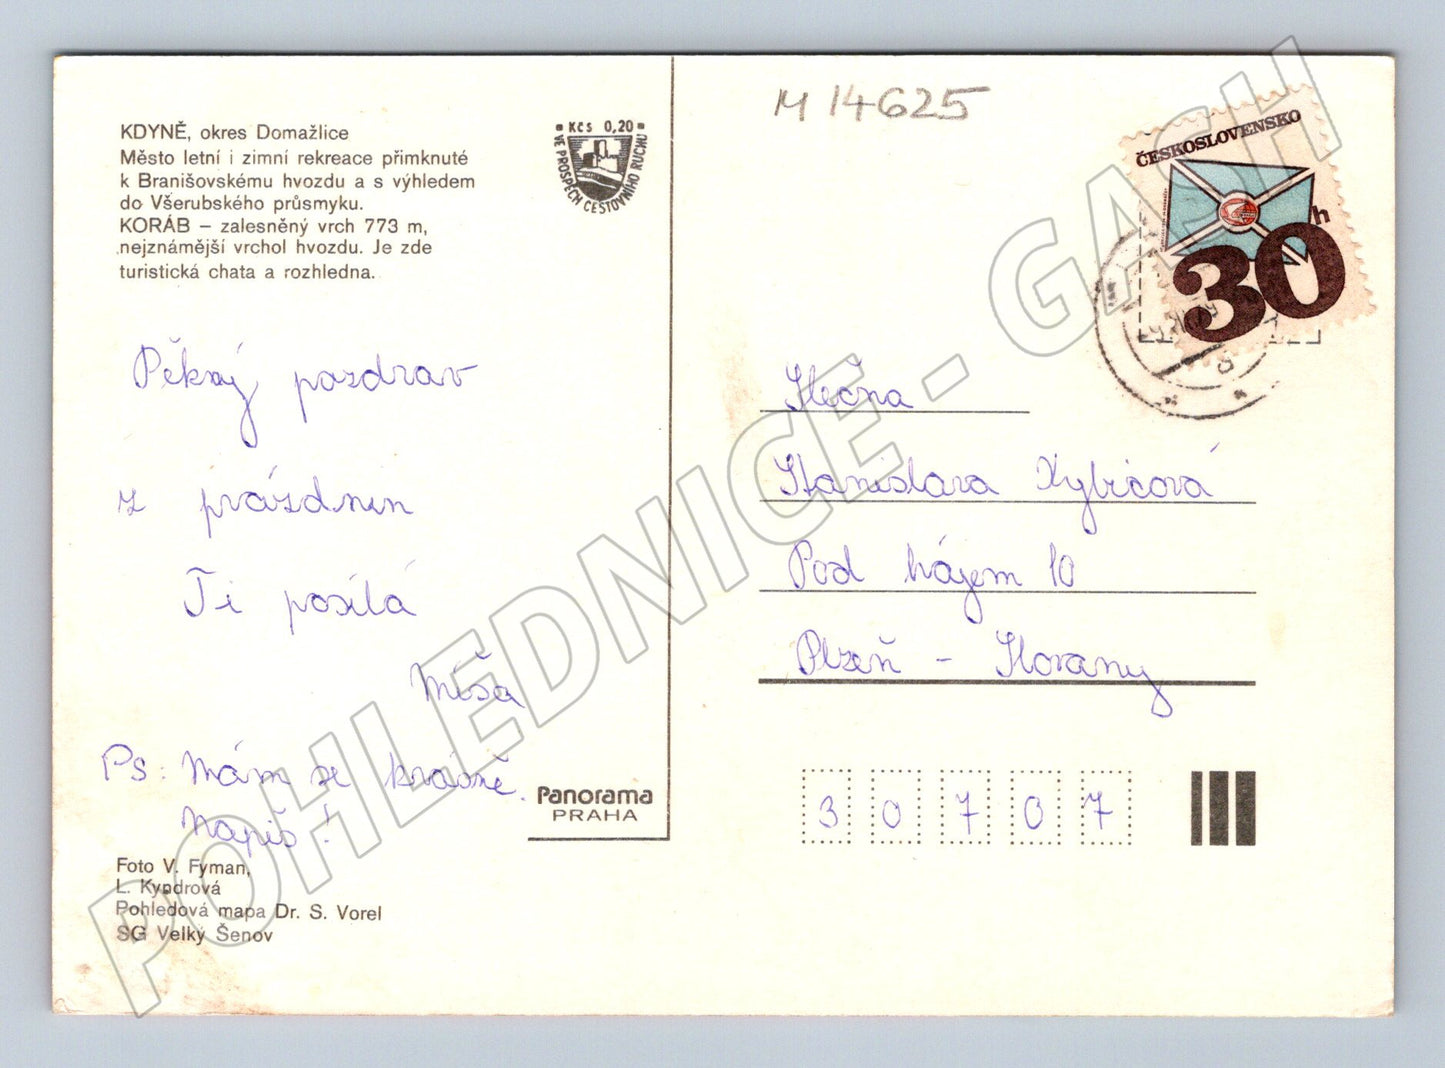 KDYNĚ, okres Domažlice
Město letní i zimní rekreace přimknuté
k Branišovskému hvozdu a s výhledem
do Všerubského průsmyku.
KORÁB – zalesněný vrch 773 m,
nejznámější vrchol hvozdu. Je zde
turistická chata a rozhledna.
Kčs 0,20
VE PROSPĚCH CESTOVNÍHO RUCHU
M 14625
ČESKOSLOVENSKO
h
30
Pěkný pozdrav
z prázdnin
Ti posílá
Míša
Ps: Mám se krásně.
Napiš!
Slečna
Stanislava Kybicová
Pod hájem 10
Plzeň - Slovany
30707
Panorama
PRAHA
Foto V. Fyman,
L. Kyndrová
Pohledová mapa Dr. S. Vorel
SG Velký Šenov
POHLEDNICE - GASH